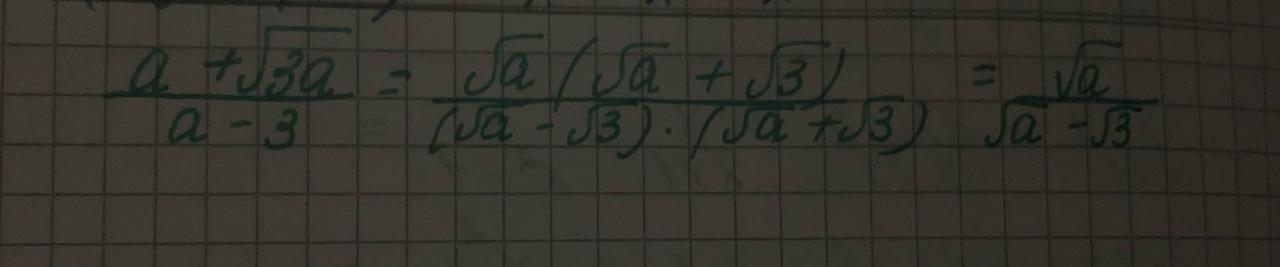 a + √3a / a - 3 = √a (√a + √3) / (√a - √3) · (√a + √3) = √a / √a - √3